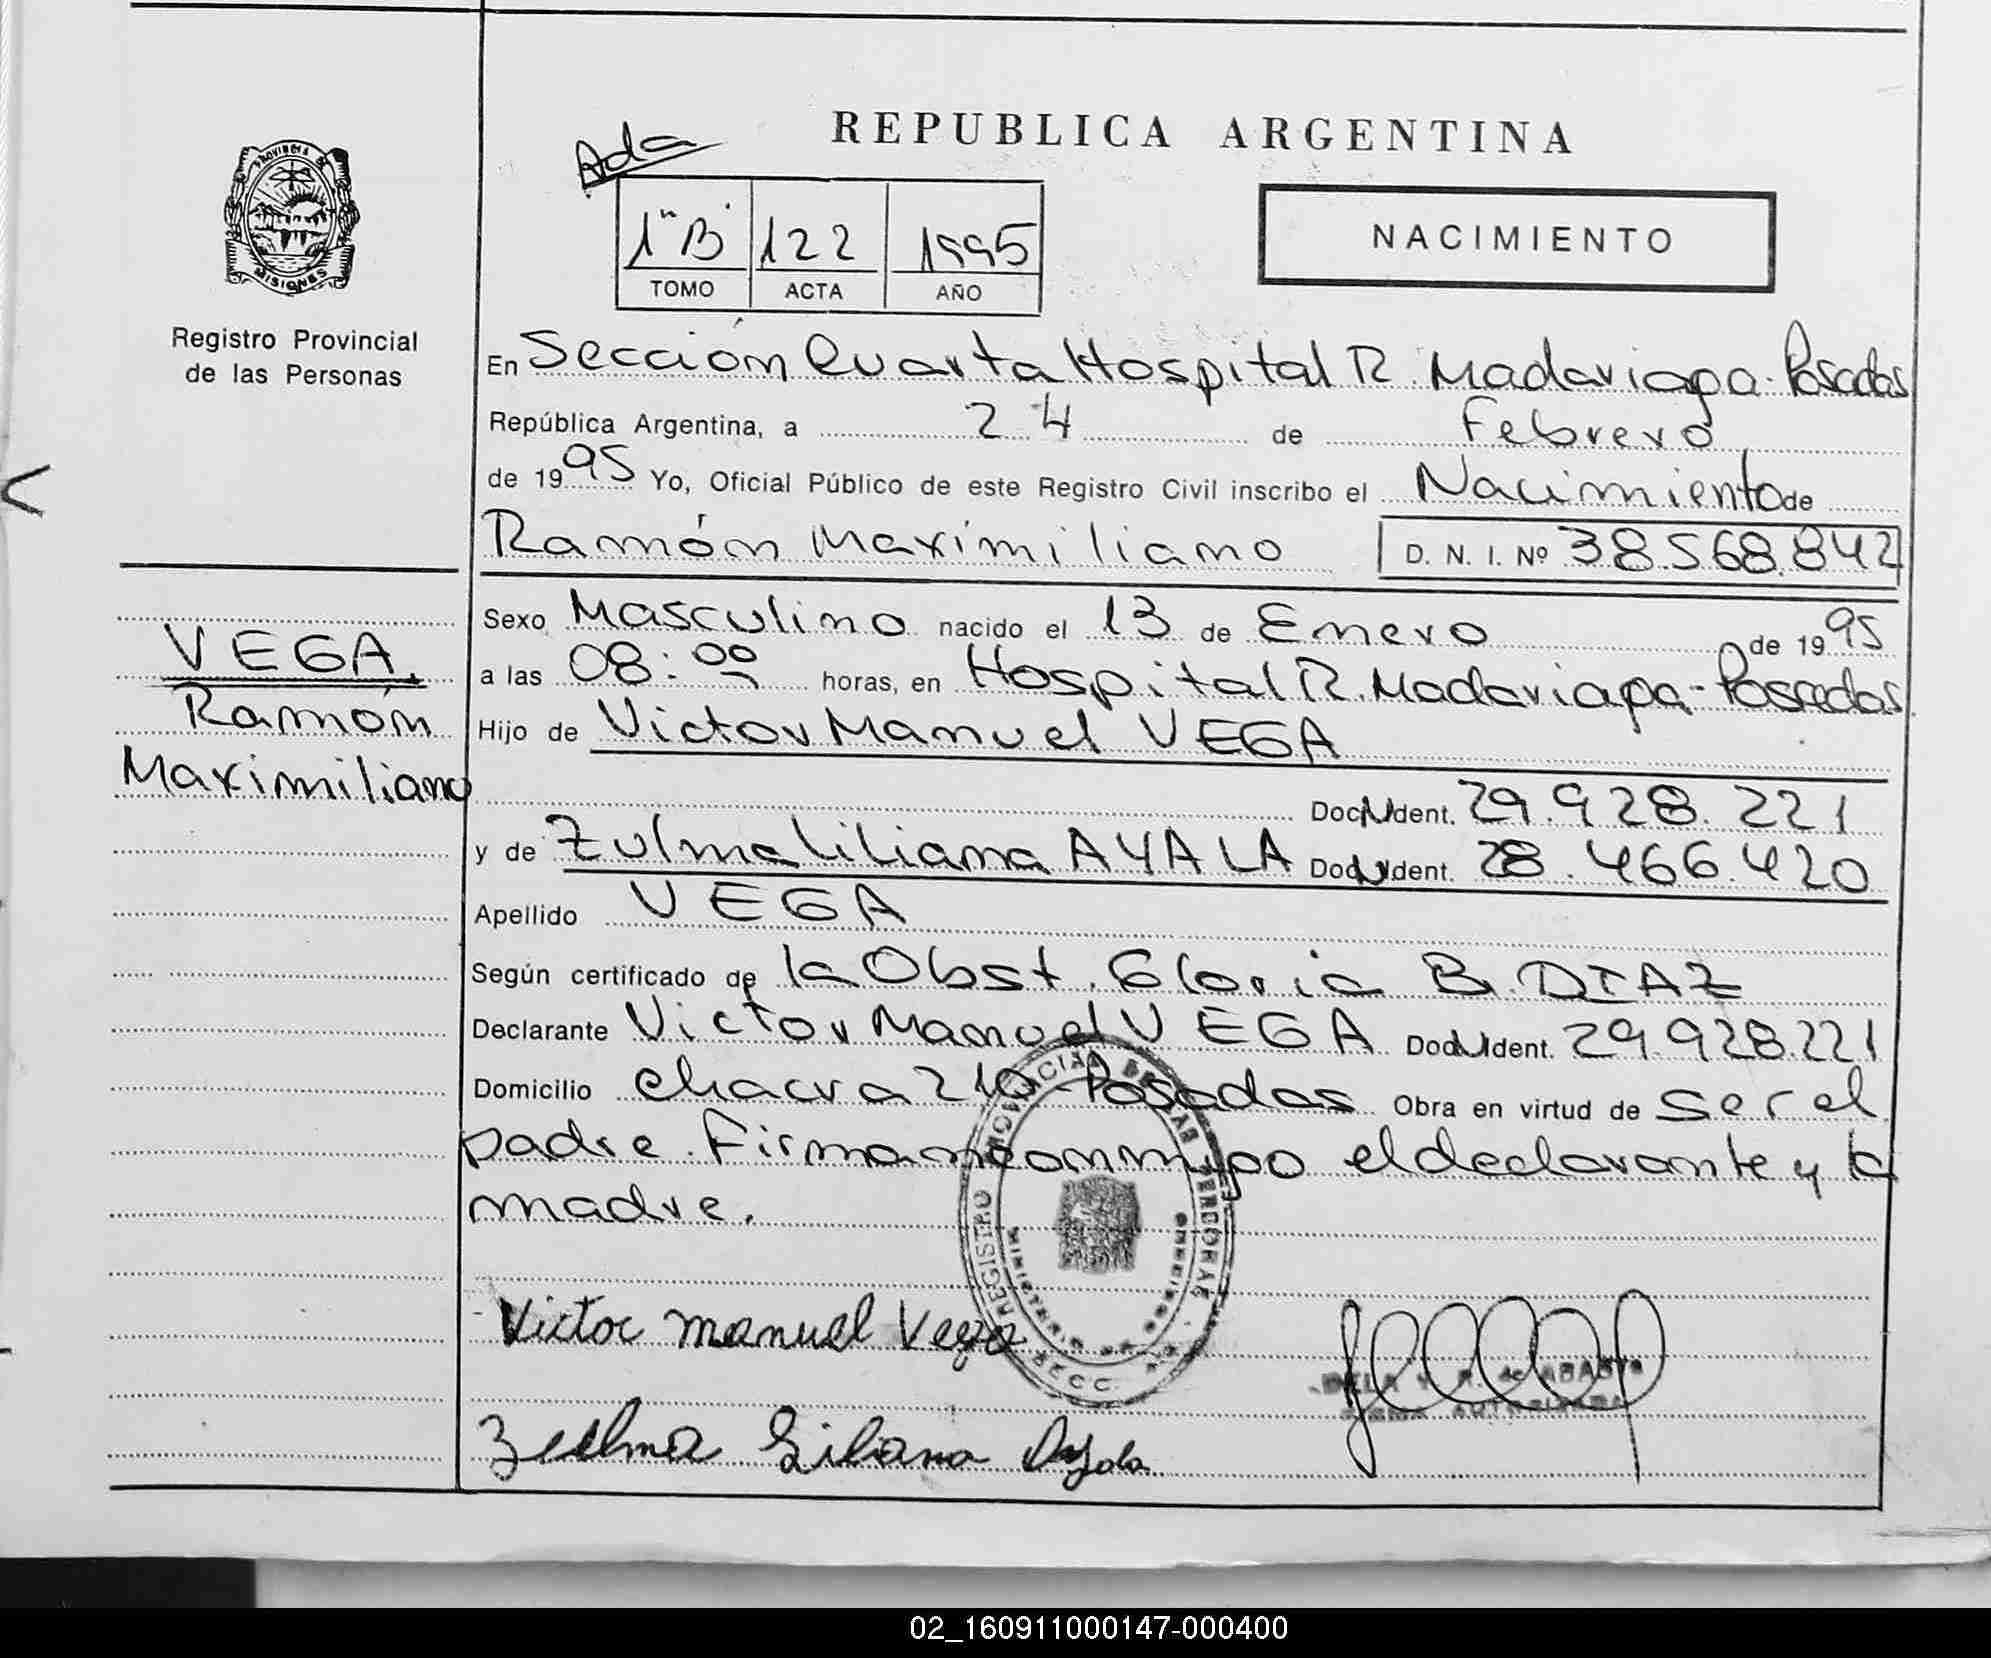 REPUBLICA ARGENTINA
Ada
1º B 122 1995
TOMO ACTA AÑO
NACIMIENTO
PROVINCIA DE
MISIONES
Registro Provincial
de las Personas
En Sección Cuarta Hospital R. Madariaga - Posadas
República Argentina, a 24 de Febrero
de 1995 Yo, Oficial Público de este Registro Civil inscribo el Nacimiento de
Ramón Maximiliano D. N. I. Nº 38.568.842
Sexo Masculino nacido el 13 de Enero de 1995
a las 08:00 horas, en Hospital R. Madariaga - Posadas
Hijo de Victor Manuel VEGA
Doc. Ident. 29.928.221
y de Zulma Liliana AYALA Doc. Ident. 28.466.420
Apellido VEGA
Según certificado de la Obst. Gloria B. DIAZ
Declarante Victor Manuel VEGA Doc. Ident. 29.928.221
Domicilio Chacra 210 - Posadas Obra en virtud de ser el
padre. Firman conmigo el declarante y la
madre.
VEGA
Ramón
Maximiliano
Victor Manuel Vega
Zulma Liliana Ayala
REGISTRO PROVINCIAL DE LAS PERSONAS
MINISTERIO DE GOBIERNO
R. de ABASTO
02_160911000147-000400